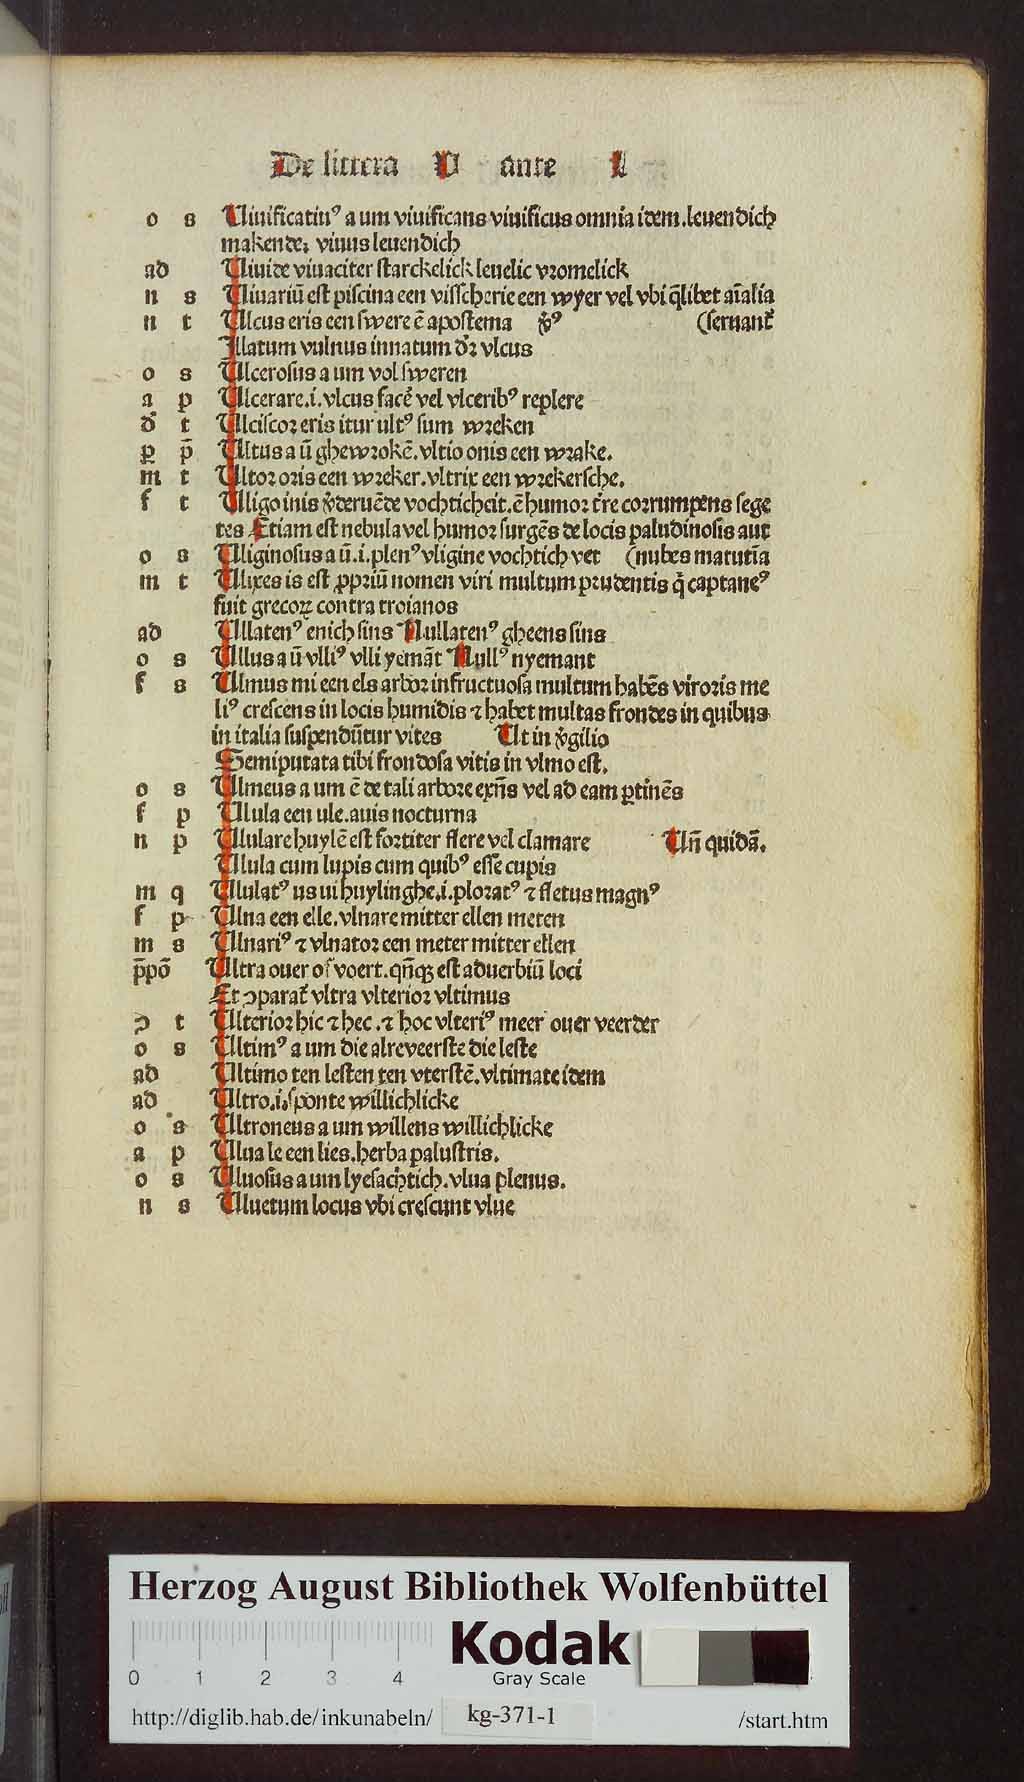 De littera V ante L
o s Uiuificatiuꝰ a um viuificans viuificus omnia idem. leuendich
makende; viuus leuendich
ad Uiuide viuaciter starckelick leuelic vromelick
n s Uiuariū est piscina een visscherie een wyer vel vbi q̄libet aīalia
n t Ulcus eris een swere ē apostema ꝟꝰ (seruant᷑
Illatum vulnus innatum dꝛ vlcus
o s Ulcerosus a um vol sweren
a p Ulcerare .i. vlcus facē vel vlceribꝰ replere
d t Ulciscor eris itur ultꝰ sum wreken
ꝑ p̄ Ultus a ū ghewrokē. vltio onis een wrake.
m t Ultor oris een wreker. vltrix een wrekersche.
f t Uligo inis ꝟderuēde vochticheit. ē humor t̄re corrumpens sege
tes Etiam est nebula vel humor surgēs de locis paludinosis aut
o s Uliginosus a ū .i. plenꝰ vligine vochtich vet (nubes matutīa
m t Ulixes is est ꝓpriū nomen viri multum prudentis q̇ captaneꝰ
fuit grecoꝝ contra troianos
ad Ullatenꝰ enich sins Nullatenꝰ gheens sins
o s Ullus a ū vlliꝰ vlli yemāt Nullꝰ nyemant
f s Ulmus mi een els arbor infructuosa multum habēs viroris me
liꝰ crescens in locis humidis ⁊ habet multas frondes in quibus
in italia suspendūtur vites Ut in ꝟgilio
Semiputata tibi frondosa vitis in vlmo est.
o s Ulmeus a um ē de tali arbore exn̄s vel ad eam ꝑtinēs
f p Ulula een ule. auis nocturna
n p Ululare huylē est fortiter flere vel clamare Un̄ quidā.
Ulula cum lupis cum quibꝰ esse cupis
m q Ululatꝰ us ui huylinghe .i. ploratꝰ ⁊ fletus magnꝰ
f p Ulna een elle. vlnare mitter ellen meten
m s Ulnariꝰ ⁊ vlnator een meter mitter ellen
p̄pō Ultra ouer of voert. qn̄qꝫ est aduerbiū loci
Et ↄparat᷑ vltra vlterior vltimus
ↄ t Ulterior hic ⁊ hec .⁊ hoc vlteriꝰ meer ouer veerder
o s Ultimꝰ a um die alreveerste die leste
ad Ultimo ten lesten ten vterstē. vltimate idem
ad Ultro .i. sponte willichlicke
o s Ultroneus a um willens willichlicke
a p Ulua le een lies. herba palustris.
o s Uluosus a um lyesachtich. vlua plenus.
n s Uluetum locus vbi crescunt vlue
Herzog August Bibliothek Wolfenbüttel
Kodak
Gray Scale
0 1 2 3 4
http://diglib.hab.de/inkunabeln/ kg-371-1 /start.htm